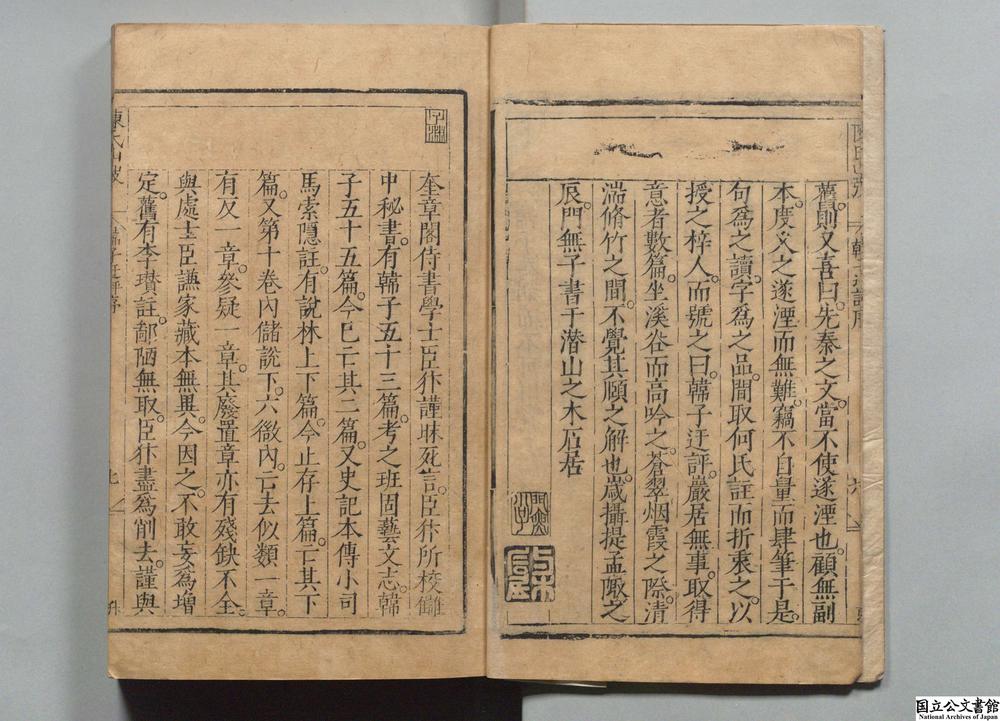 舊則又喜曰。先秦之文。當不使遂湮也。顧無副
本。度久之遂湮而無難。竊不自量而肆筆于是。
句爲之讀。字爲之品。間取何氏註而折衷之。以
授之梓人。而號之曰。韓子迂評。嚴居無事。取得
意者數篇。坐溪谷而高吟之。蒼翠烟霞之際。清
湍脩竹之間。不覺其頤之解也。歲攝提孟陬之
辰。門無子書于潜山之木石居
奎章閣侍書學士臣㺹謹昧死言。臣㺹所校讎
中秘書。有韓子五十三篇。考之班固藝文志。韓
子五十五篇。今已亡其二篇。又史記本傳小司
馬索隱註。有說林上下篇。今止存上篇。亡其下
篇。又第十卷內儲說下。六微內。亡去似類一章。
有反一章。參疑一章。其廢置章亦有殘缺不全。
與處士臣謙家藏本無異。今因之。不敢妄爲增
定。舊有李瓚註。鄙陋無取。臣㺹盡爲削去。謹與
韓子迂評序
国立公文書館
National Archives of Japan